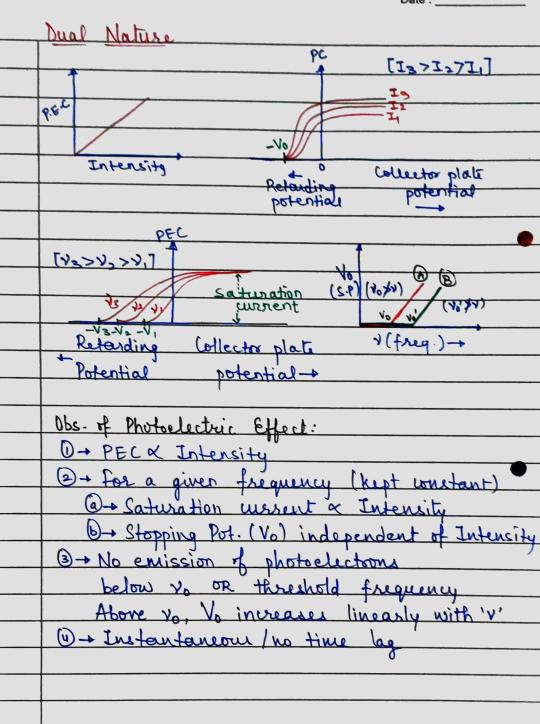 Date :
Dual Nature
PC
[I3 > I2 > I1]
P.E.C
I3
I2
I1
-V0
0
Intensity
Retarding potential
Collector plate potential
PEC
[ν3 > ν2 > ν1]
ν3 ν2 ν1
saturation current
-V3 -V2 -V1
Retarding Potential
Collector plate potential
V0
(S.P)
A
B
ν0 ν0'
ν (freq.)
Obs. of Photoelectric Effect:
① → PEC ∝ Intensity
② → For a given frequency (kept constant)
ⓐ → Saturation current ∝ Intensity
ⓑ → Stopping Pot. (V0) independent of Intensity
③ → No emission of photoelectrons
below ν0 OR threshold frequency
Above ν0, V0 increases linearly with 'ν'
④ → Instantaneous / no time lag